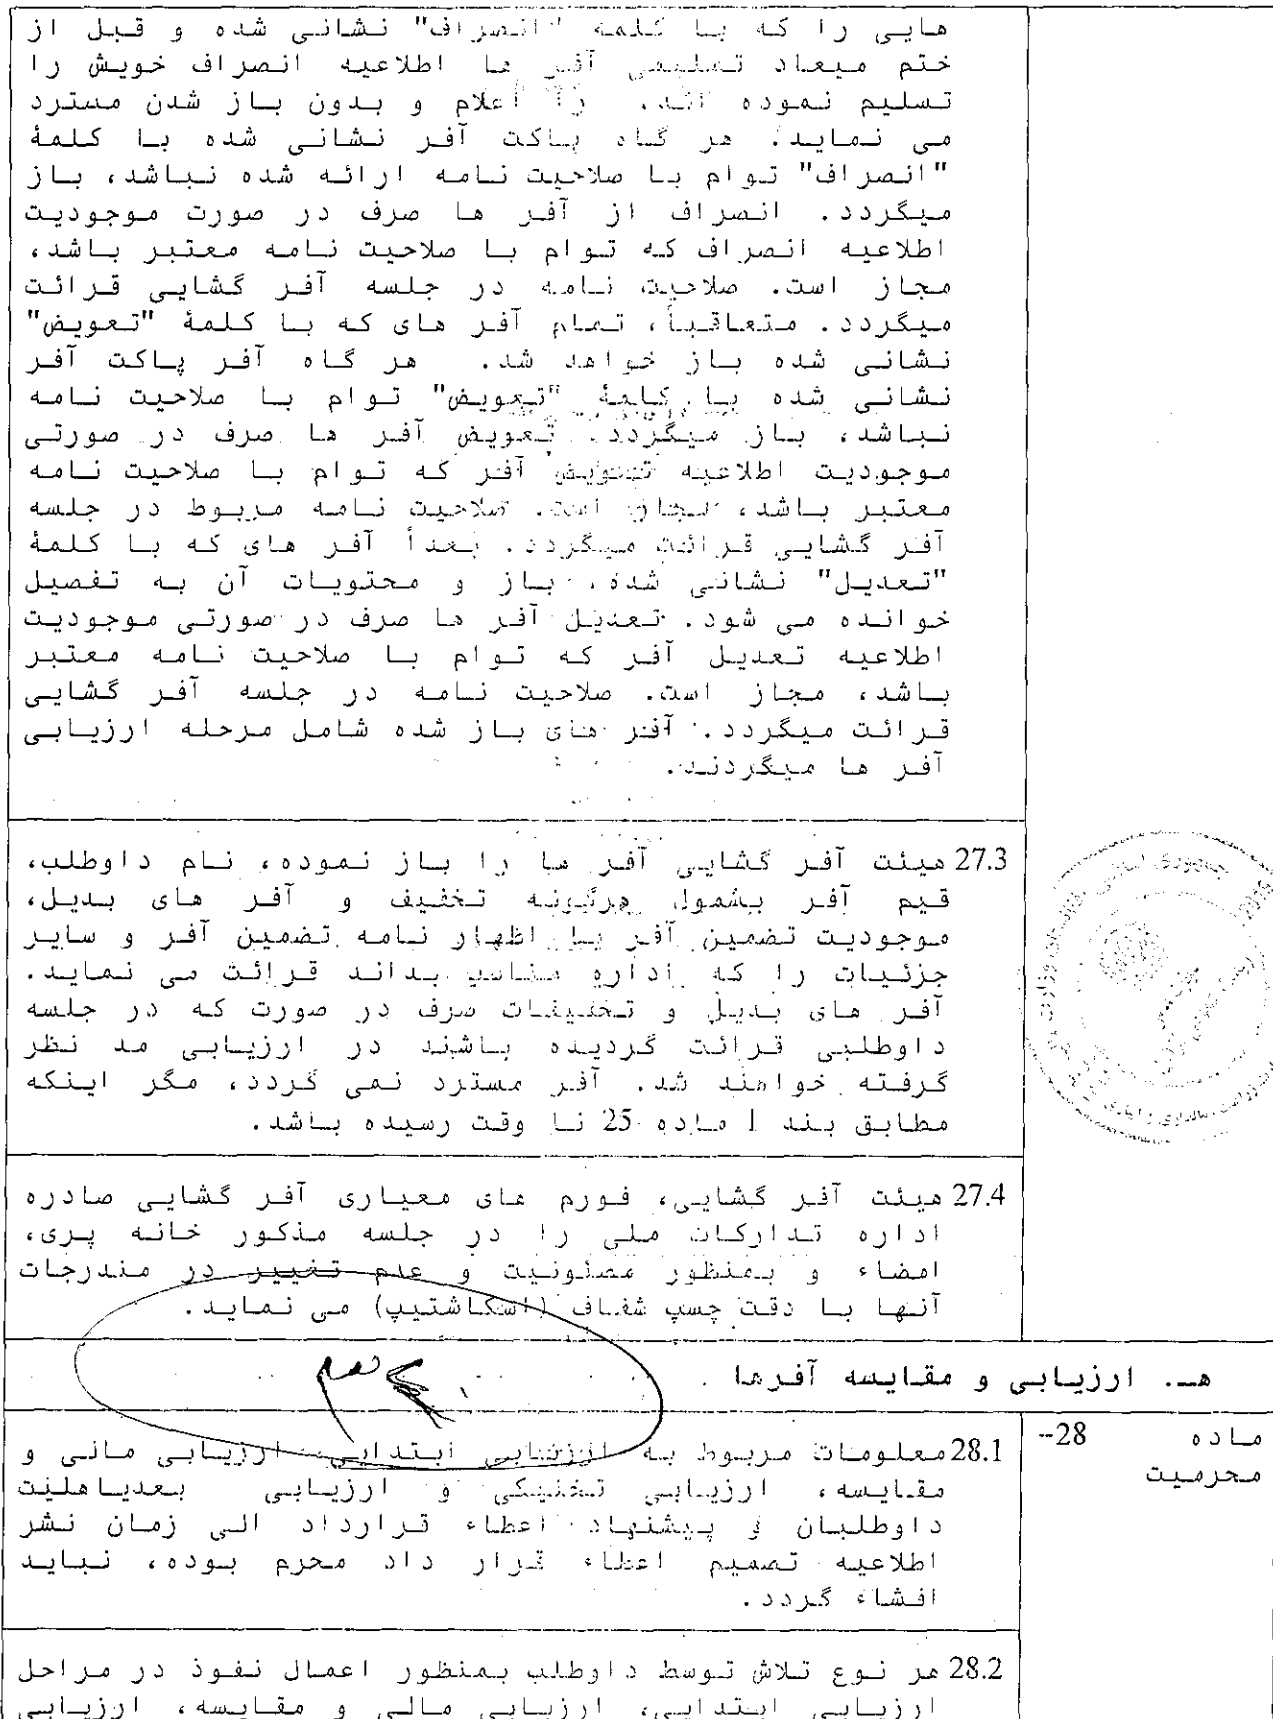 هایی را که با کلمه "انصراف" نشانی شده و قبل از
ختم میعاد تسلیمی آفر ها اطلاعیه انصراف خویش را
تسلیم نموده اند، را اعلام و بدون باز شدن مسترد
می نماید. هر گاه پاکت آفر نشانی شده با کلمۀ
"انصراف" توام با صلاحیت نامه ارائه شده نباشد، باز
میگردد. انصراف از آفر ها صرف در صورت موجودیت
اطلاعیه انصراف که توام با صلاحیت نامه معتبر باشد،
مجاز است. صلاحیت نامه در جلسه آفر گشایی قرائت
میگردد. متعاقباً، تمام آفر های که با کلمۀ "تعویض"
نشانی شده باز خواهد شد. هر گاه آفر پاکت آفر
نشانی شده با کلمۀ "تعویض" توام با صلاحیت نامه
نباشد، باز میگردد. تعویض آفر ها صرف در صورتی
موجودیت اطلاعیه تعویض آفر که توام با صلاحیت نامه
معتبر باشد، مجاز است. صلاحیت نامه مربوط در جلسه
آفر گشایی قرائت میگردد. بعداً آفر های که با کلمۀ
"تعدیل" نشانی شده، باز و محتویات آن به تفصیل
خوانده می شود. تعدیل آفر ها صرف در صورتی موجودیت
اطلاعیه تعدیل آفر که توام با صلاحیت نامه معتبر
باشد، مجاز است. صلاحیت نامه در جلسه آفر گشایی
قرائت میگردد. آفر های باز شده شامل مرحله ارزیابی
آفر ها میگردند.
27.3 هیئت آفر گشایی آفر ها را باز نموده، نام داوطلب،
قیم آفر بشمول هرگونه تخفیف و آفر های بدیل،
موجودیت تضمین آفر یا اظهار نامه تضمین آفر و سایر
جزئیات را که اداره مناسب بداند قرائت می نماید.
آفر های بدیل و تخفیفات صرف در صورت که در جلسه
داوطلبی قرائت گردیده باشند در ارزیابی مد نظر
گرفته خواهند شد. آفر مسترد نمی گردد، مگر اینکه
مطابق بند 1 ماده 25 نا وقت رسیده باشد.
27.4 هیئت آفر گشایی، فورم های معیاری آفر گشایی صادره
اداره تدارکات ملی را در جلسه مذکور خانه پری،
امضاء و بمنظور مصئونیت و عدم تغییر در مندرجات
آنها با دقت چسپ شفاف (اسکاشتیپ) می نماید.
هـ. ارزیابی و مقایسه آفرها
ماده 28-
محرمیت
28.1 معلومات مربوط به ارزیابی ابتدایی، ارزیابی مالی و
مقایسه، ارزیابی تخنیکی و ارزیابی بعدیاهلیت
داوطلبان و پیشنهاد اعطاء قرارداد الی زمان نشر
اطلاعیه تصمیم اعطاء قرار داد محرم بوده، نباید
افشاء گردد.
28.2 هر نوع تلاش توسط داوطلب بمنظور اعمال نفوذ در مراحل
ارزیابی ابتدایی، ارزیابی مالی و مقایسه، ارزیابی